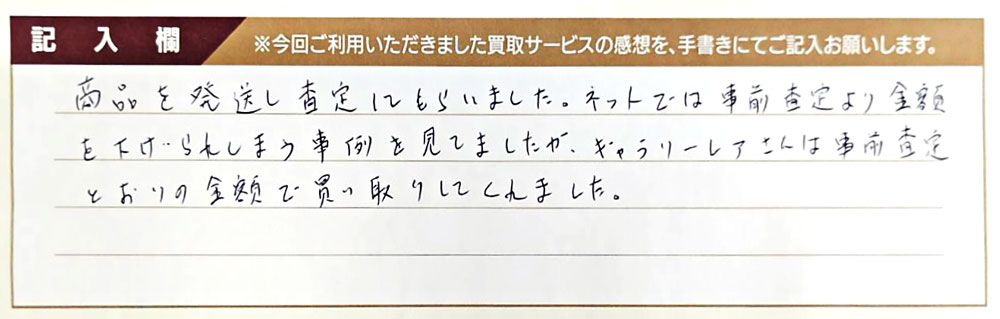 記入欄
※今回ご利用いただきました買取サービスの感想を、手書きにてご記入お願いします。
商品を発送し査定してもらいました。ネットでは事前査定より金額
を下げられてしまう事例を見てましたが、ギャラリーレアさんは事前査定
とおりの金額で買い取りしてくれました。